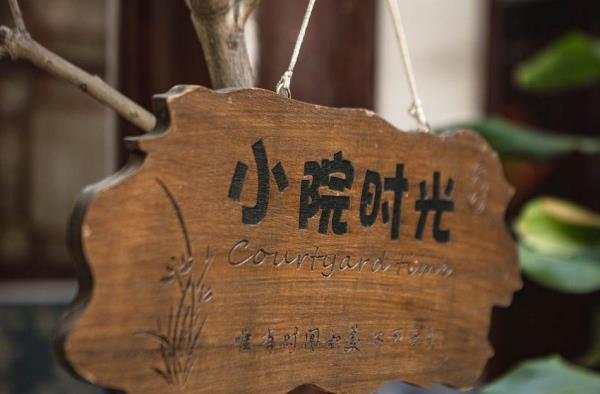 小院时光
Courtyard time
唯有时间和美不可辜负